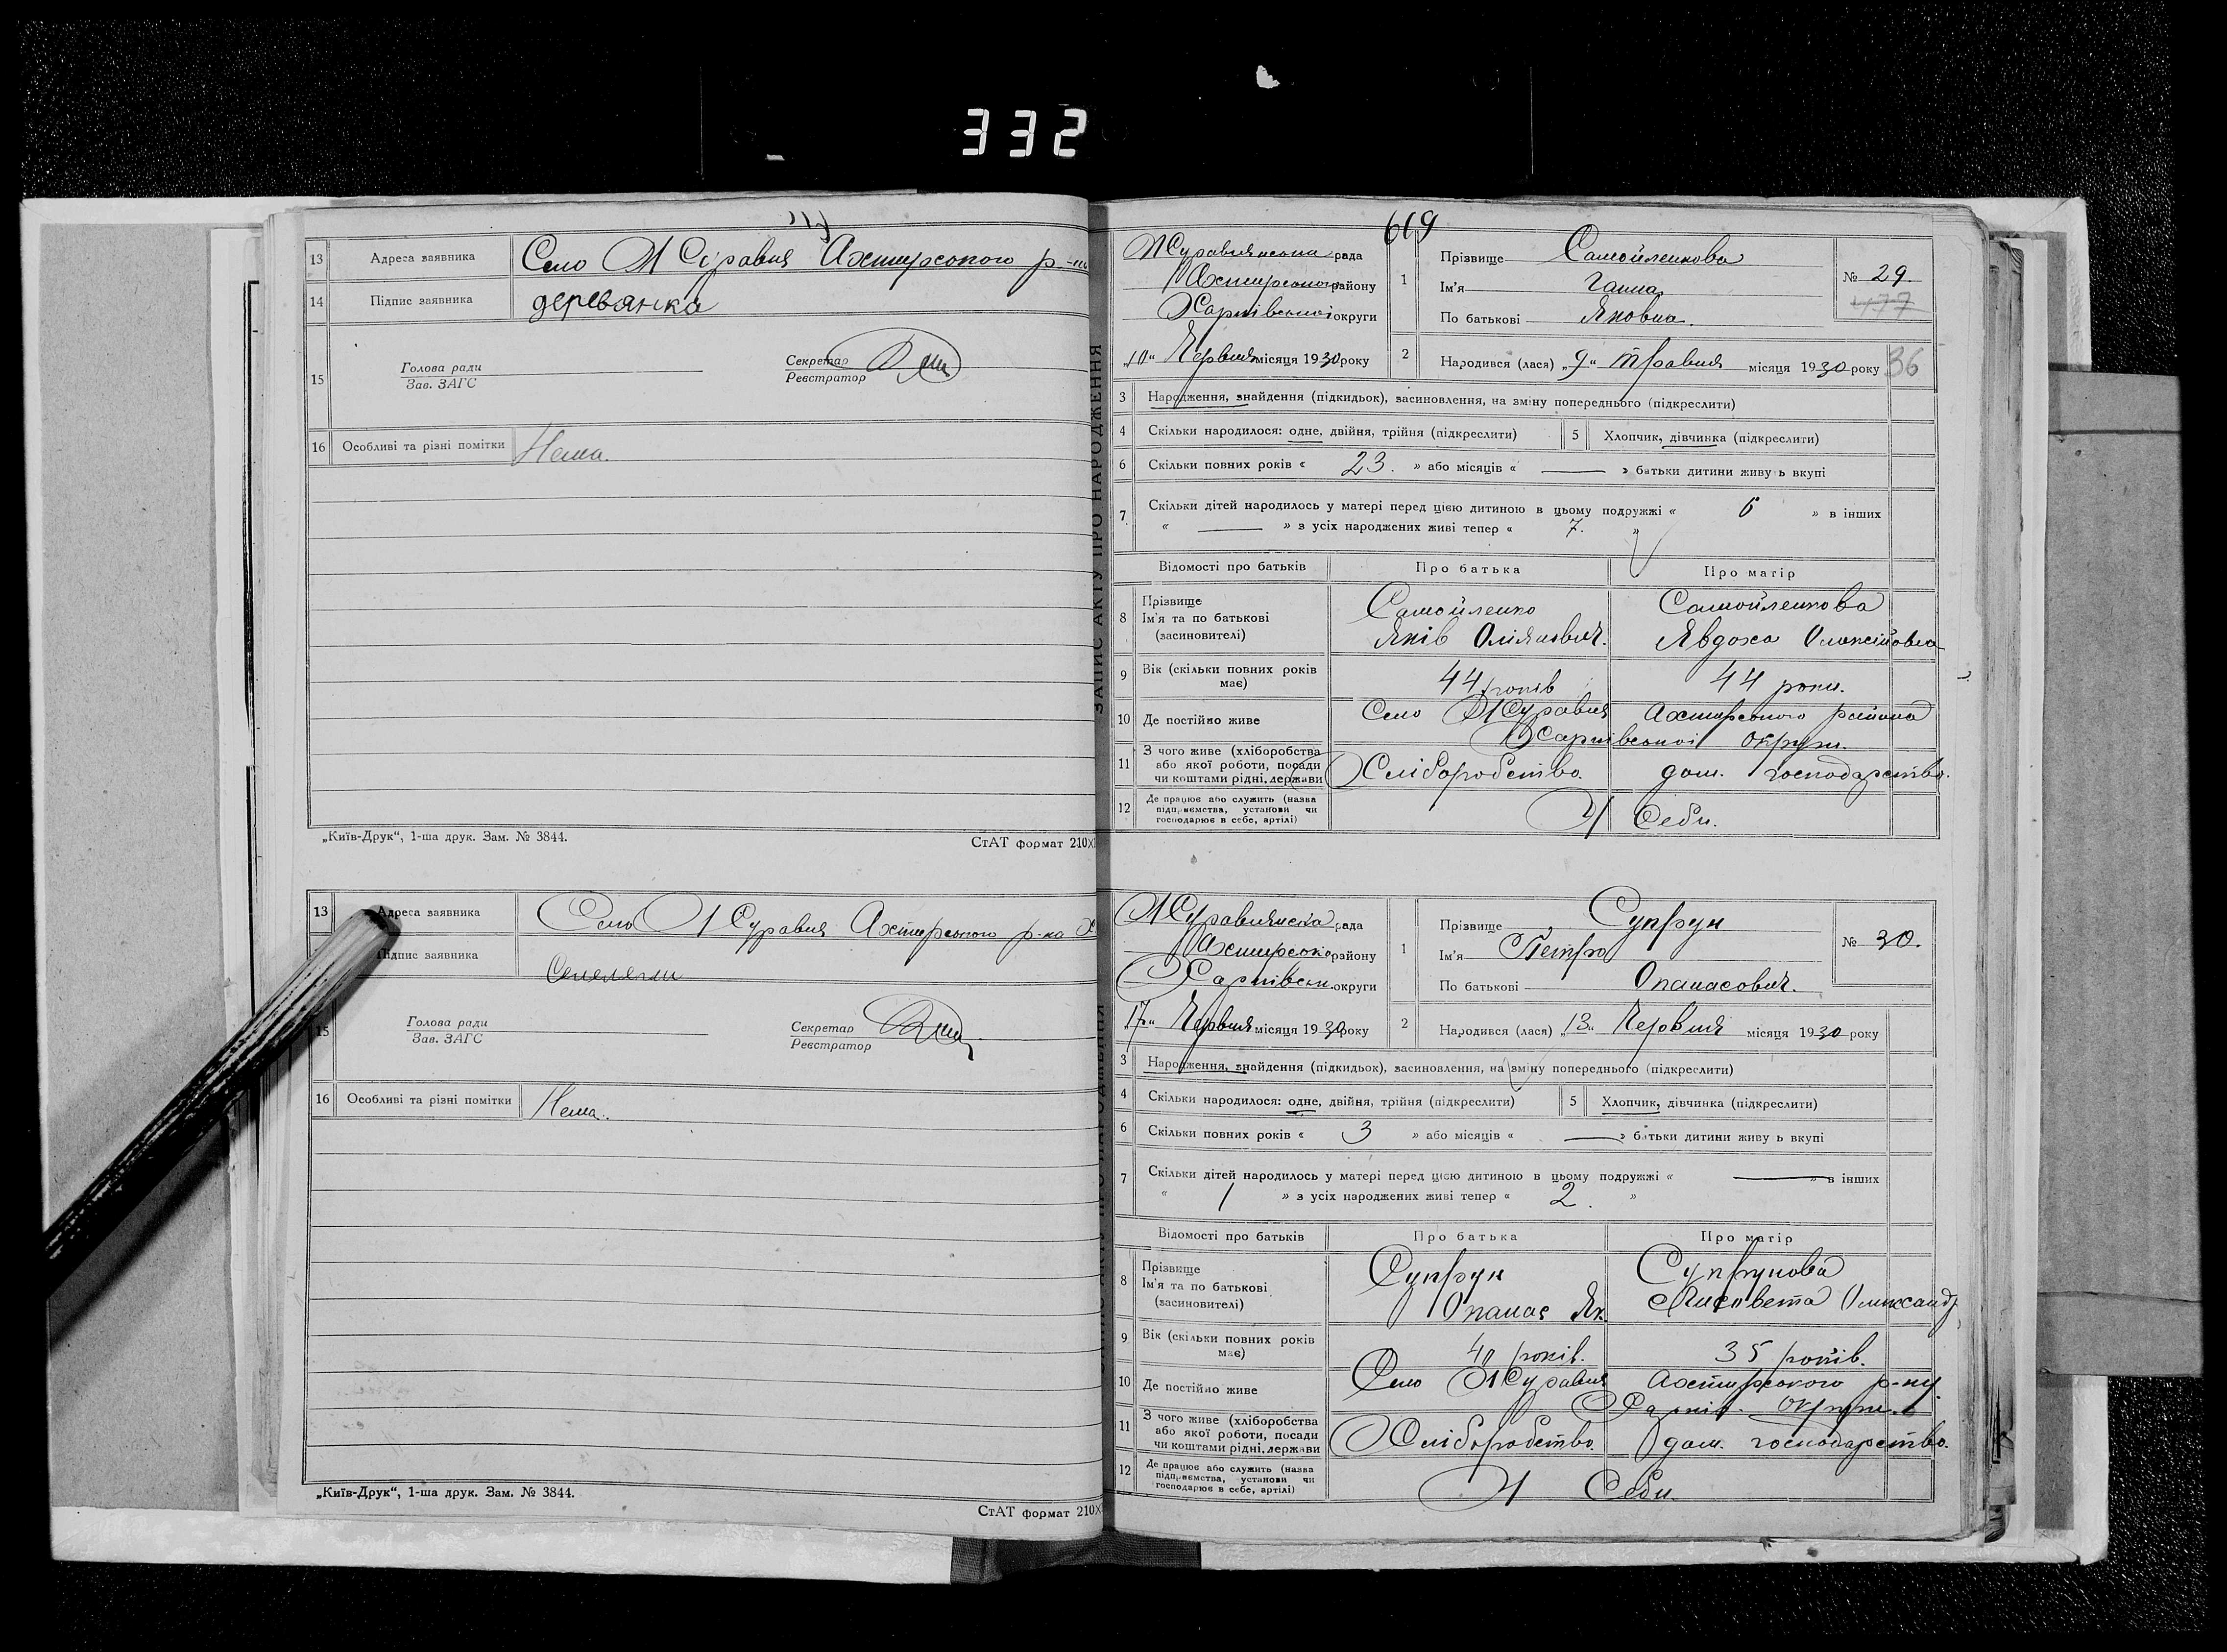 332
13 Адреса заявника Село Журавня Ахтирського р-ну
14 Підпис заявника деревянка
15 Голова ради
Зав. ЗАГС
Секретар
Реєстратор
16 Особливі та різні помітки Нема.
„Київ-Друк“, 1-ша друк. Зам. № 3844.
СтАТ формат 210X
13 Адреса заявника Село Журавня Ахтирського р-на Х
Підпис заявника
15 Голова ради
Зав. ЗАГС
Секретар
Реєстратор
16 Особливі та різні помітки Нема.
„Київ-Друк“, 1-ша друк. Зам. № 3844.
СтАТ формат 210X
ЗАПИС АКТУ ПРО НАРОДЖЕННЯ
619
Журавнянська рада
Ахтирського району
Харківської округи
„10“ Червня місяця 1930 року
1 Прізвище Самойленкова
Ім'я Ганна
По батькові Яковна.
№ 29.
477
2 Народився (лася) „9“ Травня місяця 1930 року 36
3 Народження, знайдення (підкидьок), васиновлення, на зміну попереднього (підкреслити)
4 Скільки народилося: одне, двійня, трійня (підкреслити) 5 Хлопчик, дівчинка (підкреслити)
6 Скільки повних років « 23. » або місяців « — » батьки дитини живуть вкупі
7 Скільки дітей народилось у матері перед цією дитиною в цьому подружжі « 6 » в інших
« — » з усіх народжених живі тепер « 7. »
Відомості про батьків Про батька Про матір
8 Прізвище
Ім'я та по батькові
(васиновителі)
Самойленко
Яків
Самойленкова
Явдоха Олексіївна
9 Вік (скільки повних років має) 44 років 44 роки.
10 Де постійно живе Село Журавня Ахтирського района
Харківської округи.
11 З чого живе (хліборобства
або якої роботи, посади
чи коштами рідні, держави
Хліборобство. дом. господарство.
12 Де працює або служить (назва
підприємства, установи чи
господарює в себе, артілі)
У Себи.
Журавнянска рада
Ахтирсько району
Харківськ. округи
„17“ Червня місяця 1930 року
1 Прізвище Супрун
Ім'я Петро
По батькові Опанасович.
№ 30.
2 Народився (лася) „13“ Червня місяця 1930 року
3 Народження, знайдення (підкидьок), васиновлення, на зміну попереднього (підкреслити)
4 Скільки народилося: одне, двійня, трійня (підкреслити) 5 Хлопчик, дівчинка (підкреслити)
6 Скільки повних років « 3 » або місяців « — » батьки дитини живуть вкупі
7 Скільки дітей народилось у матері перед цією дитиною в цьому подружжі « — » в інших
« 1 » з усіх народжених живі тепер « 2. »
Відомості про батьків Про батька Про матір
8 Прізвище
Ім'я та по батькові
(васиновителі)
Супрун
Опанас Як.
Супрунова
Лисовета Олександ
9 Вік (скільки повних років має) 40 років. 35 років.
10 Де постійно живе Село Журавня Ахтирського р-ну.
Харків. округи.
11 З чого живе (хліборобства
або якої роботи, посади
чи коштами рідні, держави
Хліборобство. дом. господарство.
12 Де працює або служить (назва
підприємства, установи чи
господарює в себе, артілі)
У Себи.